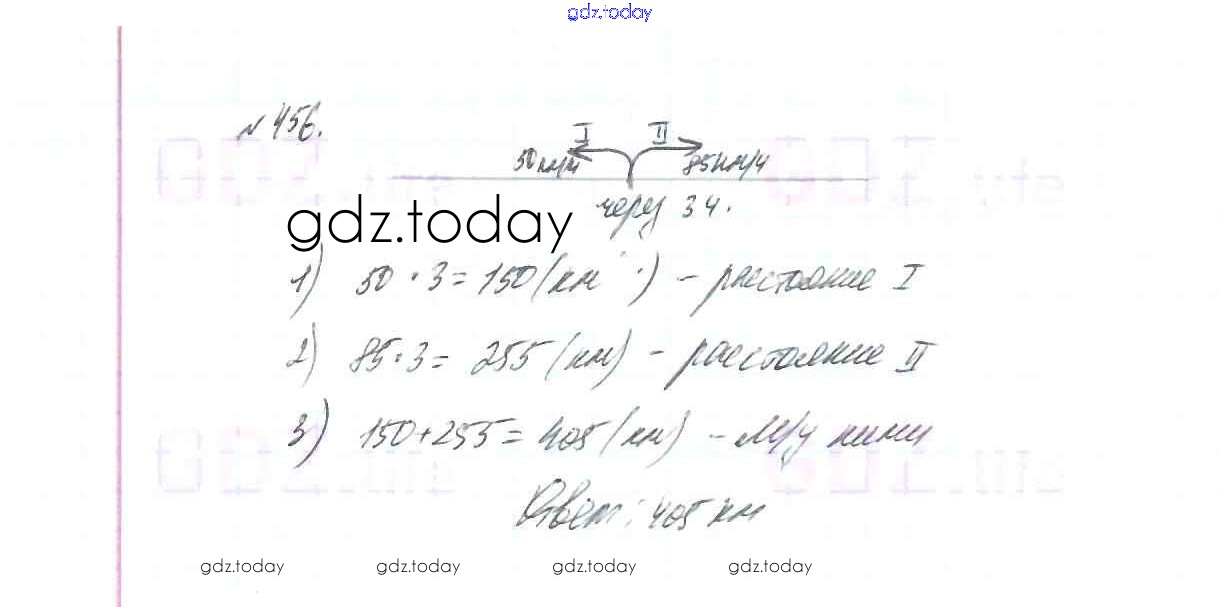 gdz.today
№ 456.
I II
50 км/ч 85 км/ч
через 3 ч.
gdz.today
1) 50 · 3 = 150 (км) - расстояние I
2) 85 · 3 = 255 (км) - расстояние II
3) 150 + 255 = 405 (км) - м/у ними
Ответ: 405 км
gdz.today gdz.today gdz.today gdz.today